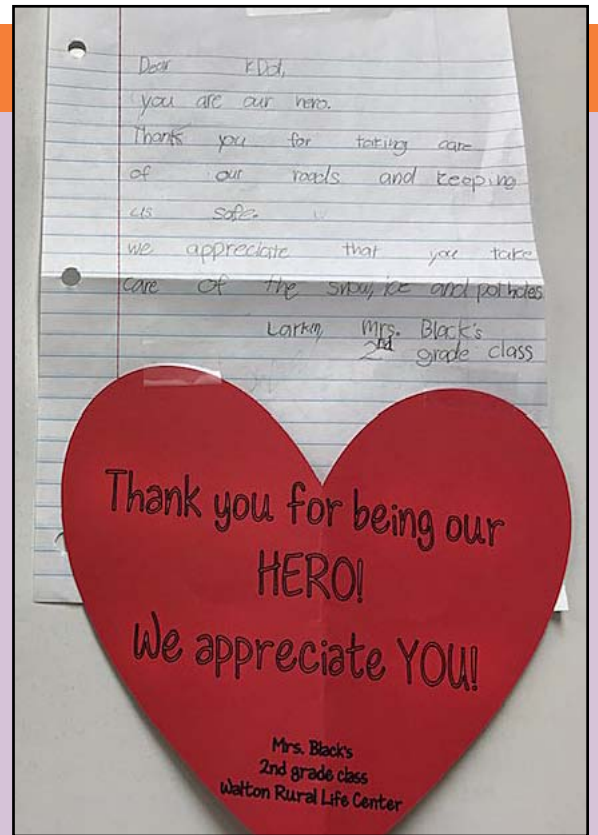 Dear KDot,
you are our hero.
Thank you for taking care
of our roads and keeping
us safe.
we appreciate that you take
care of the snow, ice and potholes
Larkin, Mrs. Black's
2nd grade class
Thank you for being our
HERO!
We appreciate YOU!
Mrs. Black's
2nd grade class
Walton Rural Life Center